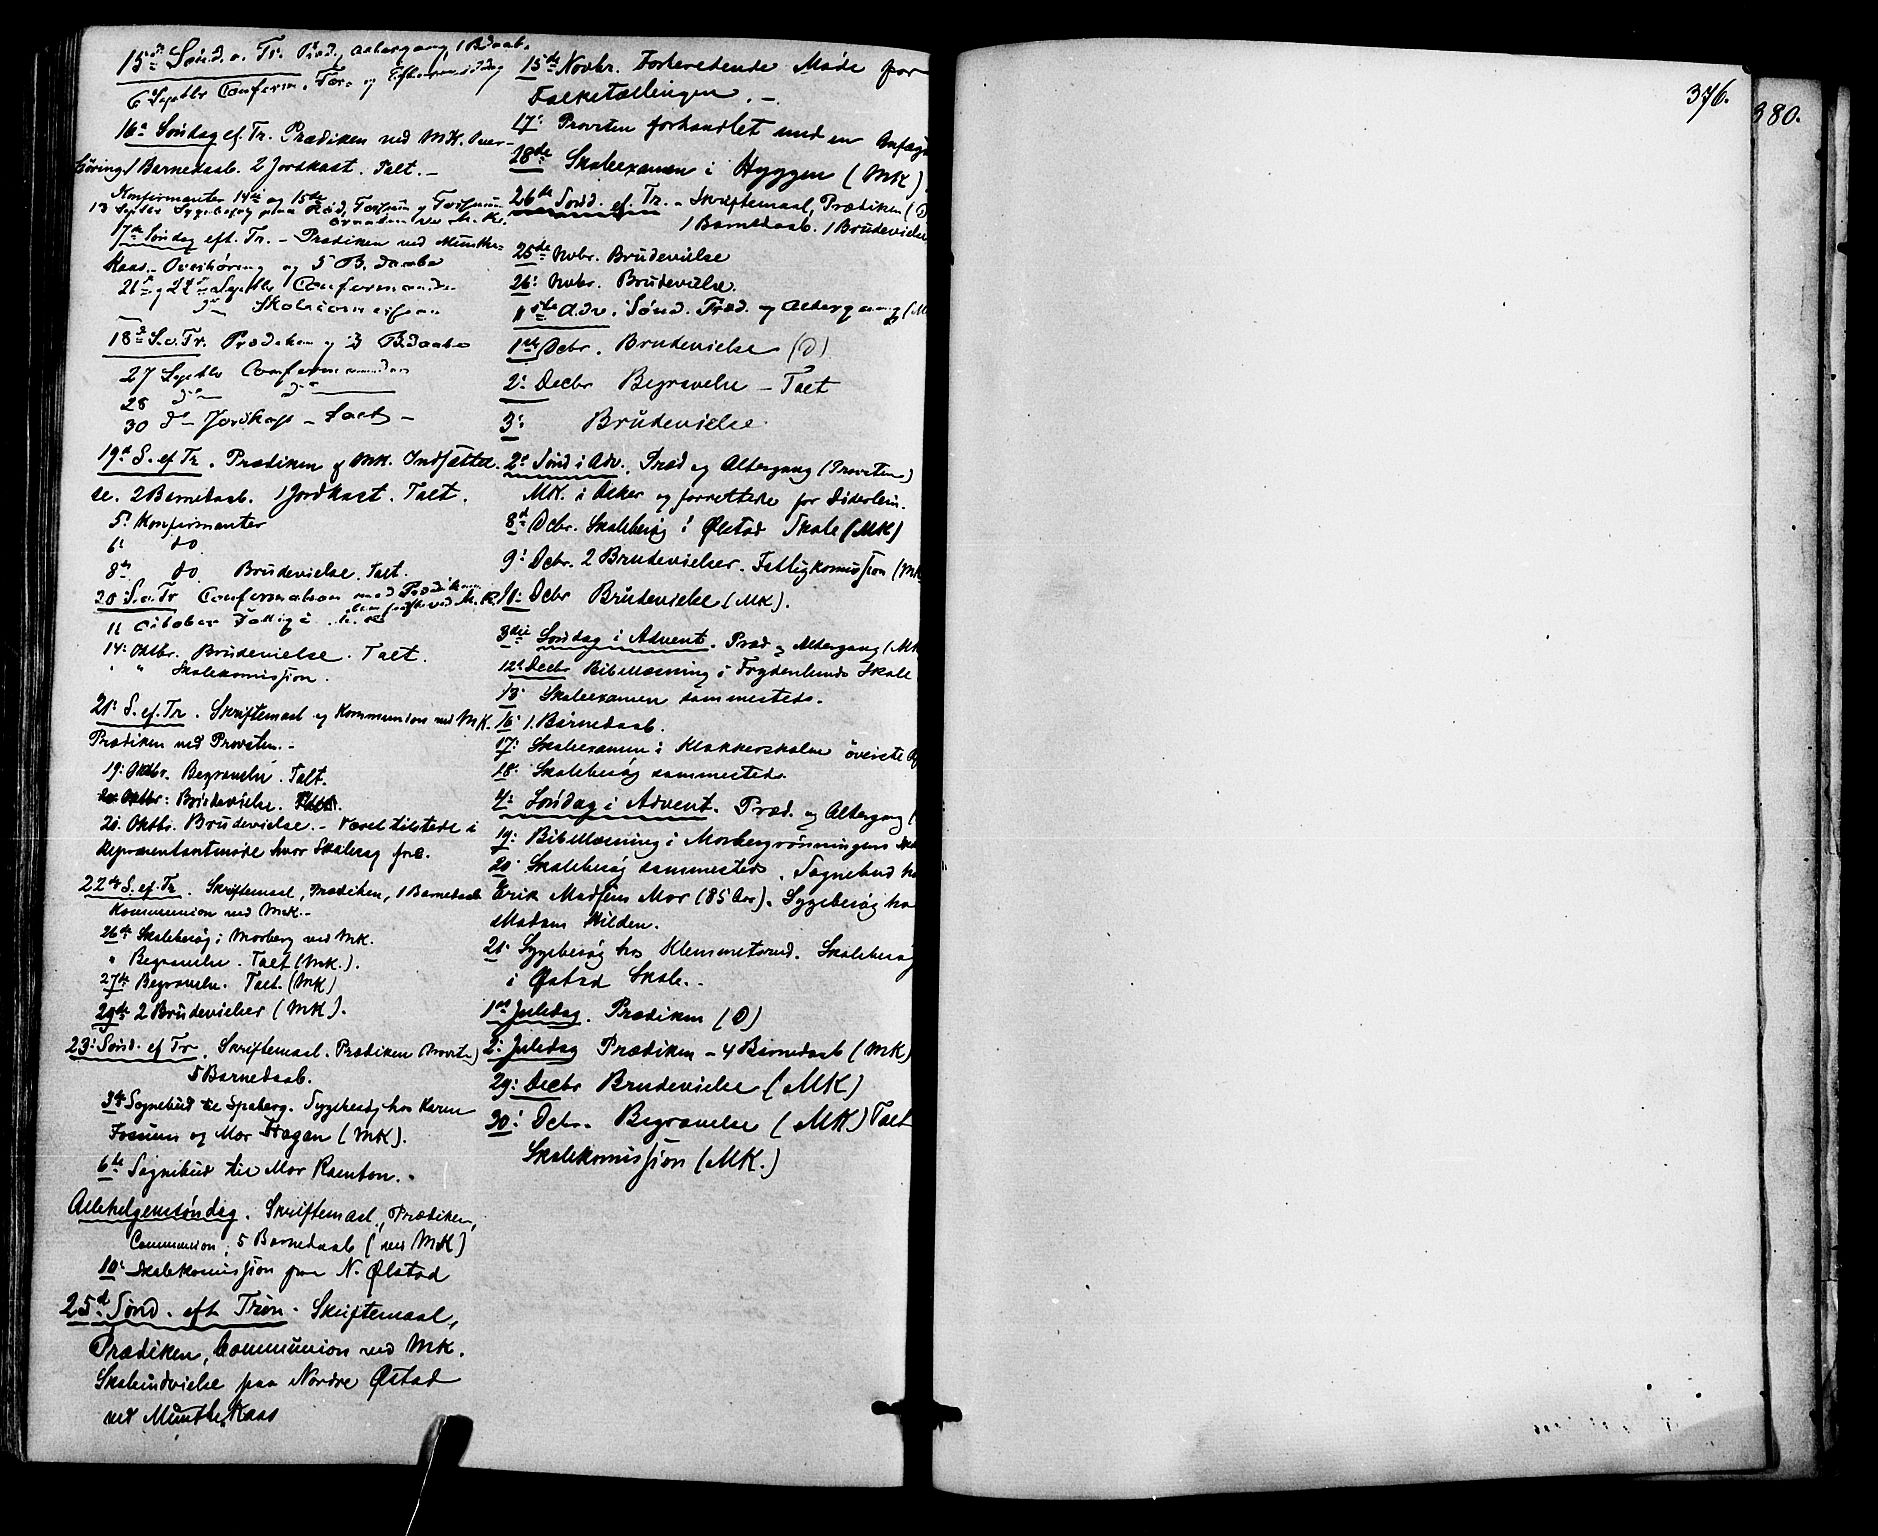 15de Sønd. e. Tr. Præd., Altergang, 1 Bdaab.
6 Septbr Conferm. For- og Eftermiddag
16e Søndag ef. Tr. Prædiken ved MK. Over-
høring 1 Barnedaab. 2 Jordkast. Talt. –
Konfirmanter 14de og 15de
13 Septbr Sygebesøg paa Rød, Fossum og
17de Søndag eft. Tr. – Prædiken ved Munthe-
Kaas – Overhøring og 5 B. daabe
21de og 22de Septbr Confermander
do Skolecommission
18de S. e. Tr. Prædiken og 3 B.daabe
27 Septbr Confermander
28 do do
30 do Jordkast – Talt –
19de S. ef Tr. Prædiken af MK. Indsættel-
se. 2 Barnedaab. 1 Jordkast. Talt.
5. Konfirmanter
6: do
8de do Brudevielse. Talt.
20 S. e. Tr Confermation med Prædiken
ved M. K.
11 October
14: Oktbr. Brudevielse. Talt.
" " Skolekomission.
21: S. ef. Tr. Skriftemaal og Kommunion ved MK.
Prædiken ved Provsten. –
19: Oktbr. Begravelse. Talt.
20 Oktbr: Brudevielse. Talt.
21. Oktbr. Brudevielse. – Været tilstede i
Repræsentantmøde hvor Skolesag fore.
22de S. ef. Tr. Skriftemaal, Prædiken, 1 Barnedaab
Kommunion ved MK. –
26de Skolebesøg i Morberg ved MK.
" Begravelse. Talt (MK.).
27de Begravelse. Talt. (MK)
29de 2 Brudevielser (MK).
23: Sønd. ef Tr. Skriftemaal. Prædiken (Provsten)
5 Barnedaab.
3de Sognebud til Spaberg. Sygebesøg hos Karen
Fossum og Mor Hagan (MK).
6te Sognebud til Mor Ramton.
Allehelgenssøndag. Skriftemaal, Prædiken,
Communion, 5 Barnedaab (ved MK)
10: Skolekomission paa N. Ølstad
25de Sønd. eft Trin. Skriftemaal,
Prædiken, Communion ved MK.
Skoleindvielse paa Nordre Østad
ved Munthe Kaas
15de Novbr. Forberedende Møde for
Folketællingen. –
17: Provsten forhandlet med en
28de Skoleexamen i Hyggen (MK)
26de Sønd. ef. Tr. – Skriftemaal, Prædiken (D
1 Barnedaab. 1 Brudevielse
25de Nvbr. Brudevielse
26: Nvbr. Brudevielse.
1ste Adv. Sønd. Præd. og Altergang (M
1ste Dcbr. Brudevielse (D)
2: Decbr Begravelse – Talt
3: Brudevielse.
2: Sønd i Adv. Præd og Altergang (Provsten)
MK. i Asker og forrettede for Diderlein.
8de Dcbr. Skolebesøg i Ølstad Skole (MK)
9: Dcbr. 2 Brudevielser. Fattigkomission (MK
10: Dcbr Brudevielse (MK).
3die Søndag i Advent. Præd og Altergang (MK
12: Decbr Bibellæsning i Frydenlunds Skole
13: Skoleexamen sammesteds.
16: 1. Barnedaab.
17: Skoleexamen i Klokkerskolens øverste
18. Skolebesøg sammesteds.
4: Søndag i Advent. Præd. og Altergang (
19: Bibellæsning i Morbergrønningens
20 Skolebesøg sammesteds. Sognebud ho
Erik Madsens Mor (85 Aar). Sygebesøg ho
Madam Wilden.
21. Sygebesøg hos Klemmetsrud. Skolebesøg
i Østad Skole. –
1ste Juledag. Prædiken (D)
2: Juledag Prædiken – 4 Barnedaab (MK)
29: Decbr Brudevielse (MK)
30: Dcbr. Begravelse (MK) Talt
Skolekomission (MK.)
376.
380.